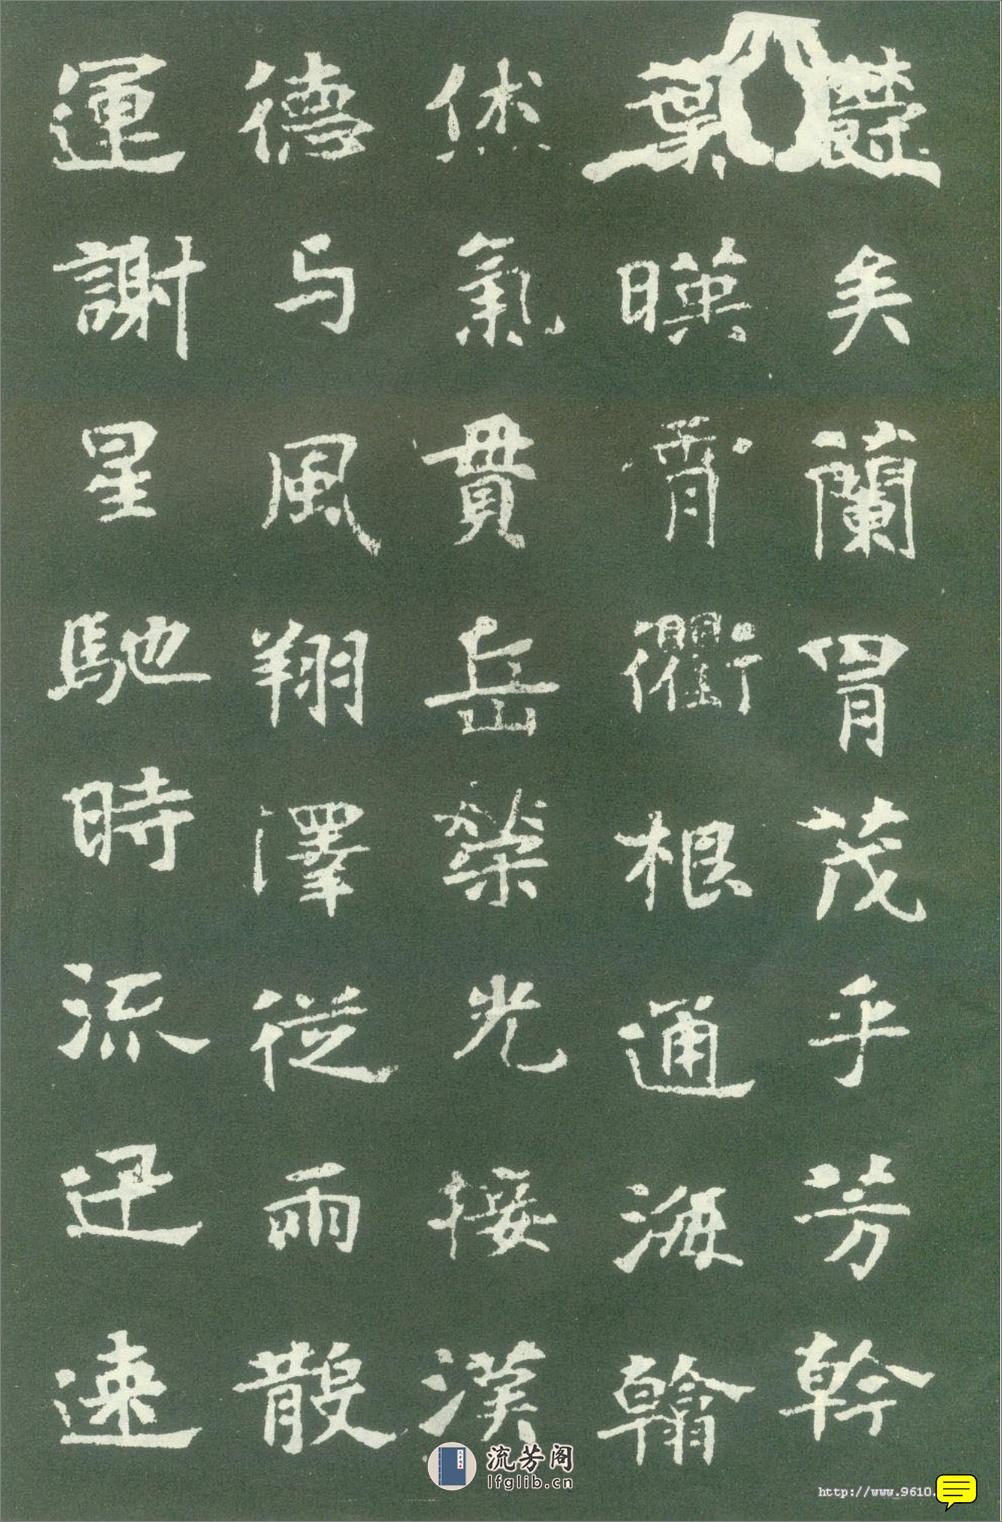 鬱矣蘭胄茂乎芳幹
葉暎霄衢根通海翰
烋氣貫岳榮光接漢
德与風翔澤從雨散
運謝星馳時流迅速
流芳阁
lfglib.cn
http://www.9610.